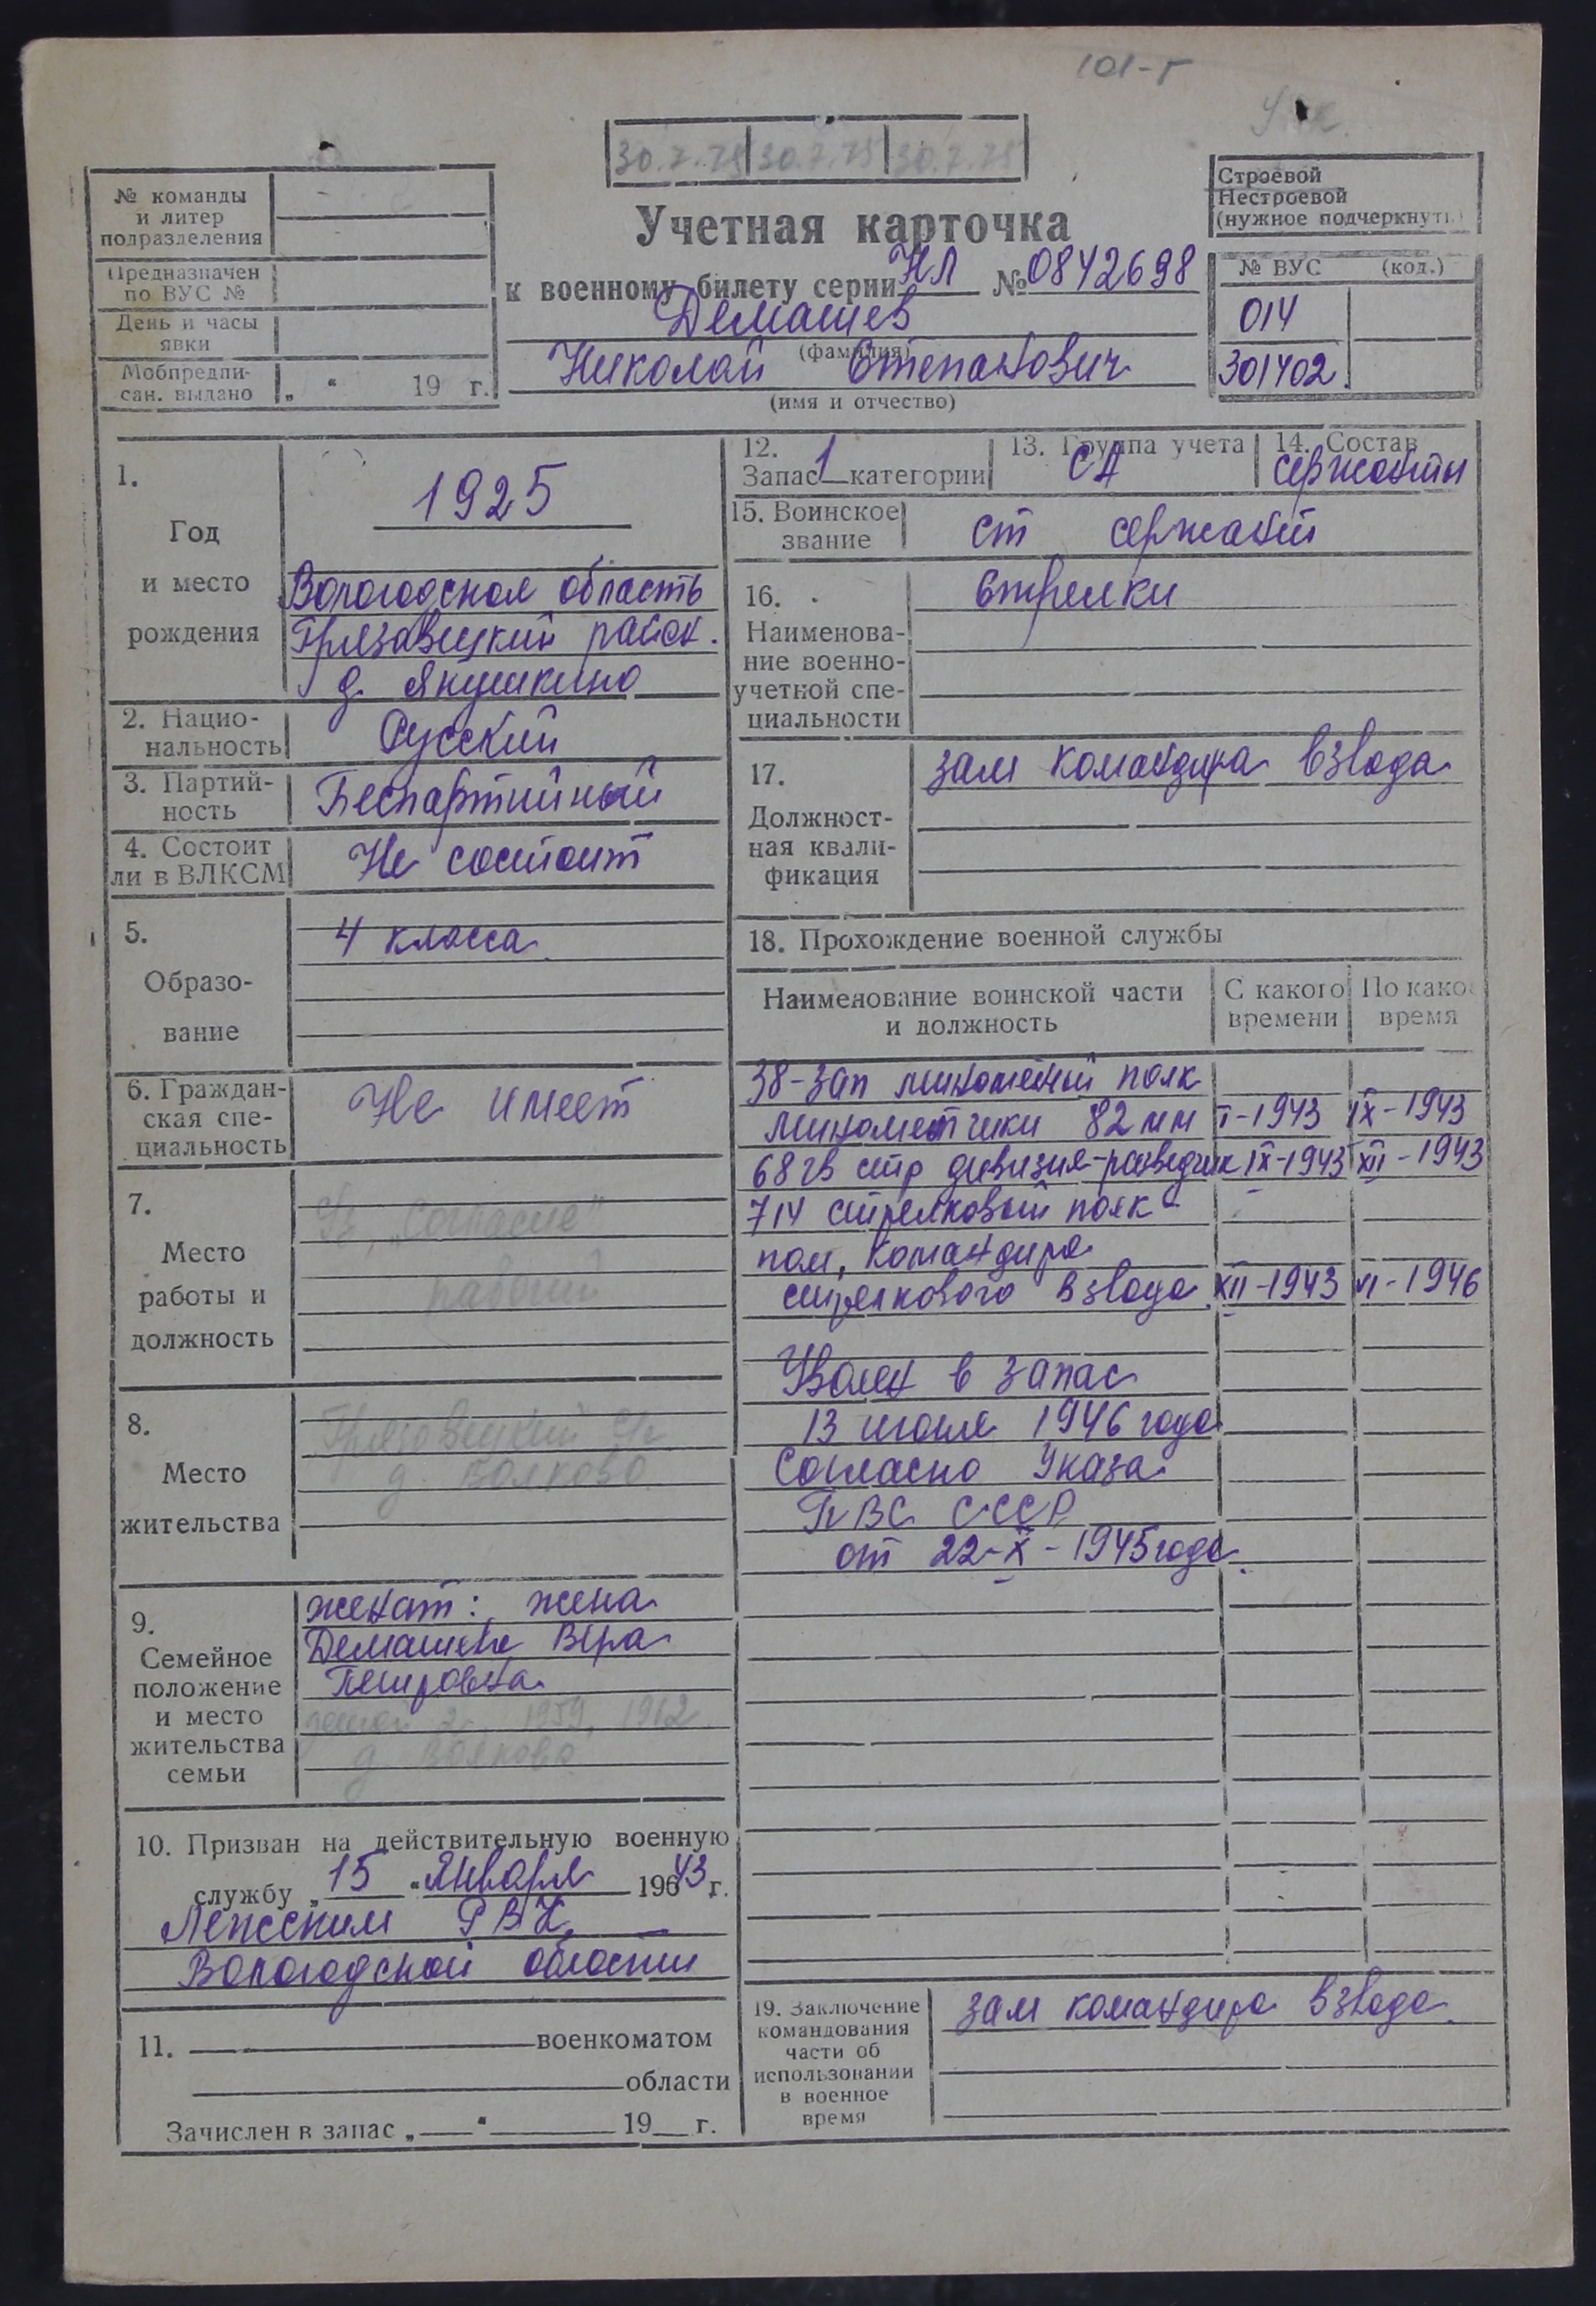 101-г
30.7.75 30.7.75 30.7.75
№ команды
и литер
подразделения
Предназначен
по ВУС №
День и часы
явки
Мобпредпи-
сан. выдано „ “ 19 г.
Учетная карточка
к военному билету серии НЛ № 0842698
Демашев
(фамилия)
Николай Степанович
(имя и отчество)
Строевой
Нестроевой
(нужное подчеркнуть)
№ ВУС (код.)
014
301402
1.
Год
и место
рождения
1925
Вологодская область
Грязовецкий район.
д. Якушкино
2. Нацио-
нальность
Русский
3. Партий-
ность
Беспартийный
4. Состоит
ли в ВЛКСМ
Не состоит
5.
Образо-
вание
4 класса
6. Граждан-
ская спе-
циальность
Не имеет
7.
Место
работы и
должность
„Согласие“
рабочий
8.
Место
жительства
Грязовецкий
д. Волково
9.
Семейное
положение
и место
жительства
семьи
женат: жена
Демашева Вера
Петровна
1959, 1962
д. Волково
10. Призван на действительную военную
службу „15“ Января 19643 г.
Лежским РВК,
Вологодской области
11. военкоматом
области
Зачислен в запас „ “ 19 г.
12.
Запас 1 категории
13. Группа учета
СА
14. Состав
сержанты
15. Воинское
звание
ст сержант
16.
Наименова-
ние военно-
учетной спе-
циальности
Стрелки
17.
Должност-
ная квали-
фикация
зам командира взвода
18. Прохождение военной службы
Наименование воинской части
и должность
С какого
времени
По како
время
38-зап минометный полк
минометчики 82 мм I-1943 IX-1943
68 гв стр дивизия-разведчик IX-1943 XII-1943
714 стрелковый полк
пом. командира
стрелкового взвода XII-1943 VI-1946
Уволен в запас
13 июня 1946 года
Согласно Указа
ПВС СССР
от 22-X-1945 года
19. Заключение
командования
части об
использовании
в военное
время
зам командира взвода